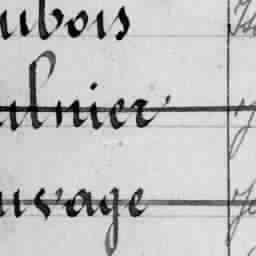 ubois
ulnier
uvage